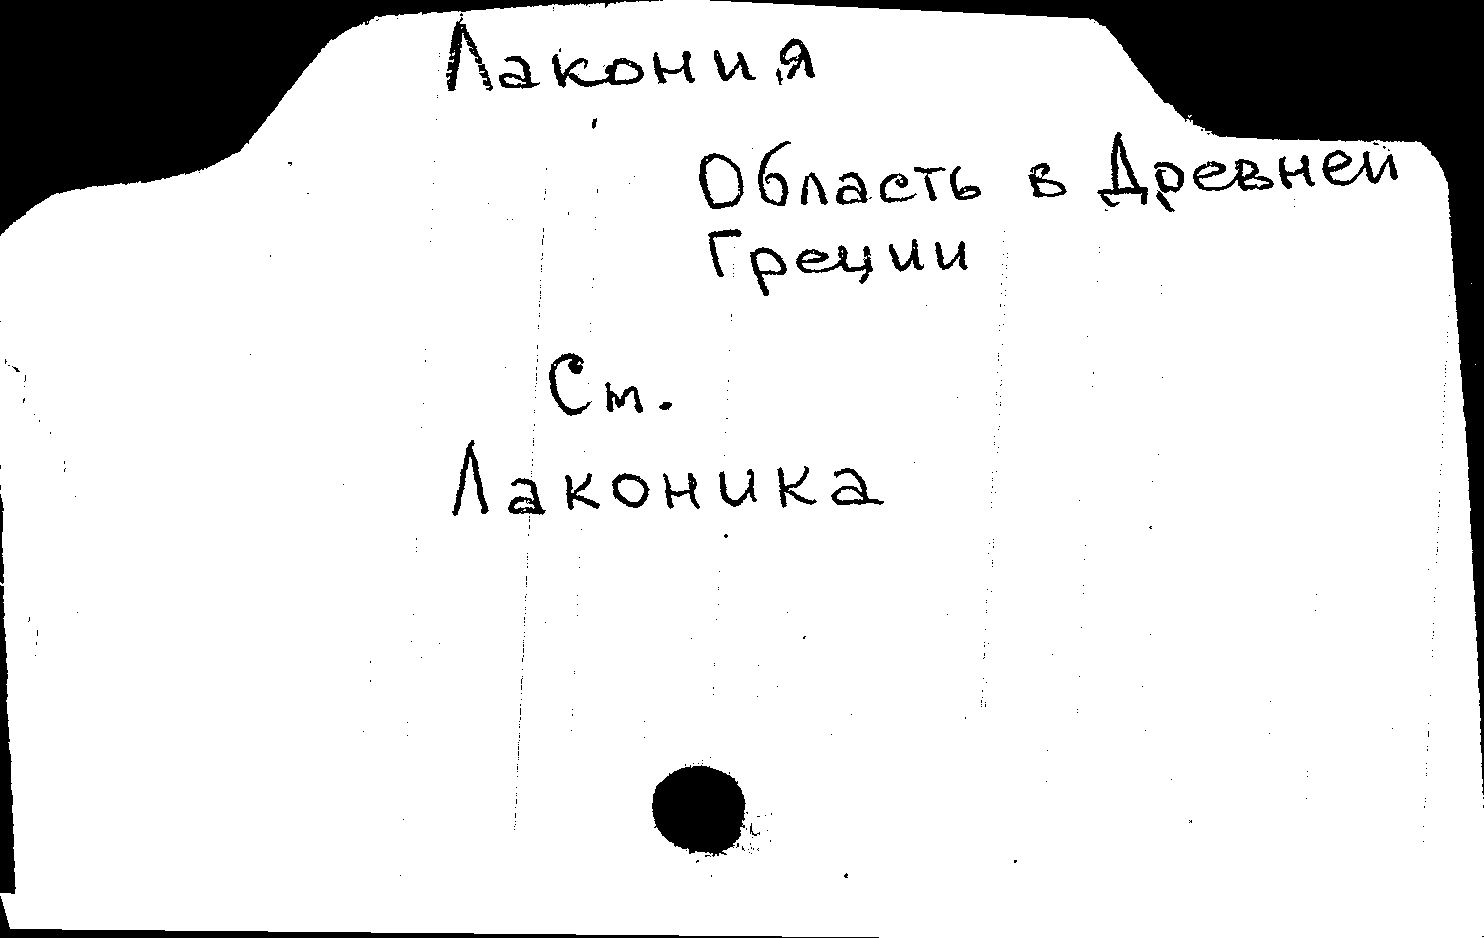 Лакония
Область в Древней
Греции
См.
Лаконика